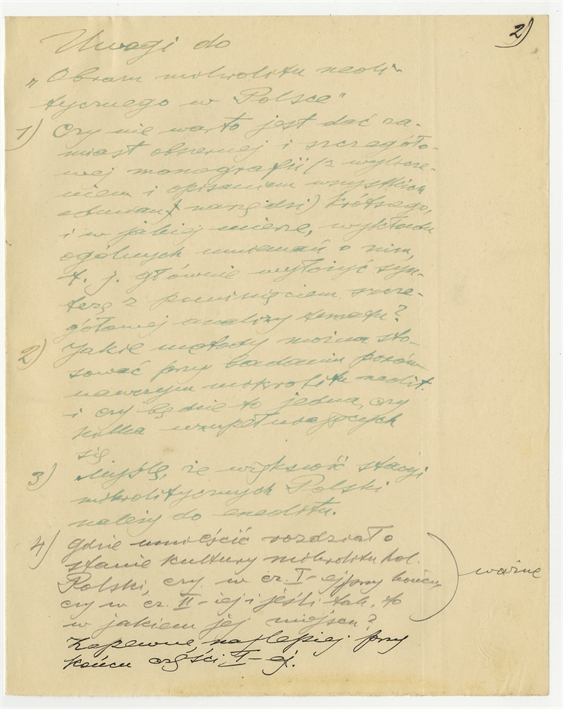 2)
Uwagi do
„Obraz mikrolitu neoli-
tycznego w Polsce"
1) Czy nie warto jest dać za-
miast obszernej i szczegóło-
wej monografii (z wylicze-
niem i opisaniem wszystkich
odmian narzędzi) krótszego,
i w jakiej mierze, wykładu
ogólnych mniemań o nim,
t. j. głównie wyłożyć syn-
tezę z pominięciem szcze-
gółowej analizy tematu?
2) Jakie metody można sto-
sować przy badaniu porów-
nawczym mikrolitu neolit.
i czy będzie to jedna, czy
kilka uzupełniających
się
3) Myślę, iż większość stacyj
mikrolitycznych Polski
należy do eneolitu.
4) Gdzie umieścić rozdział o
stanie kultury mikrolitu
Polski, czy w cz. I-ej przy końcu,
czy w cz. II-iej i jeśli tak, to
w jakiem jej miejscu?
ważne
Zapewne najlepiej przy
końcu części I-ej.